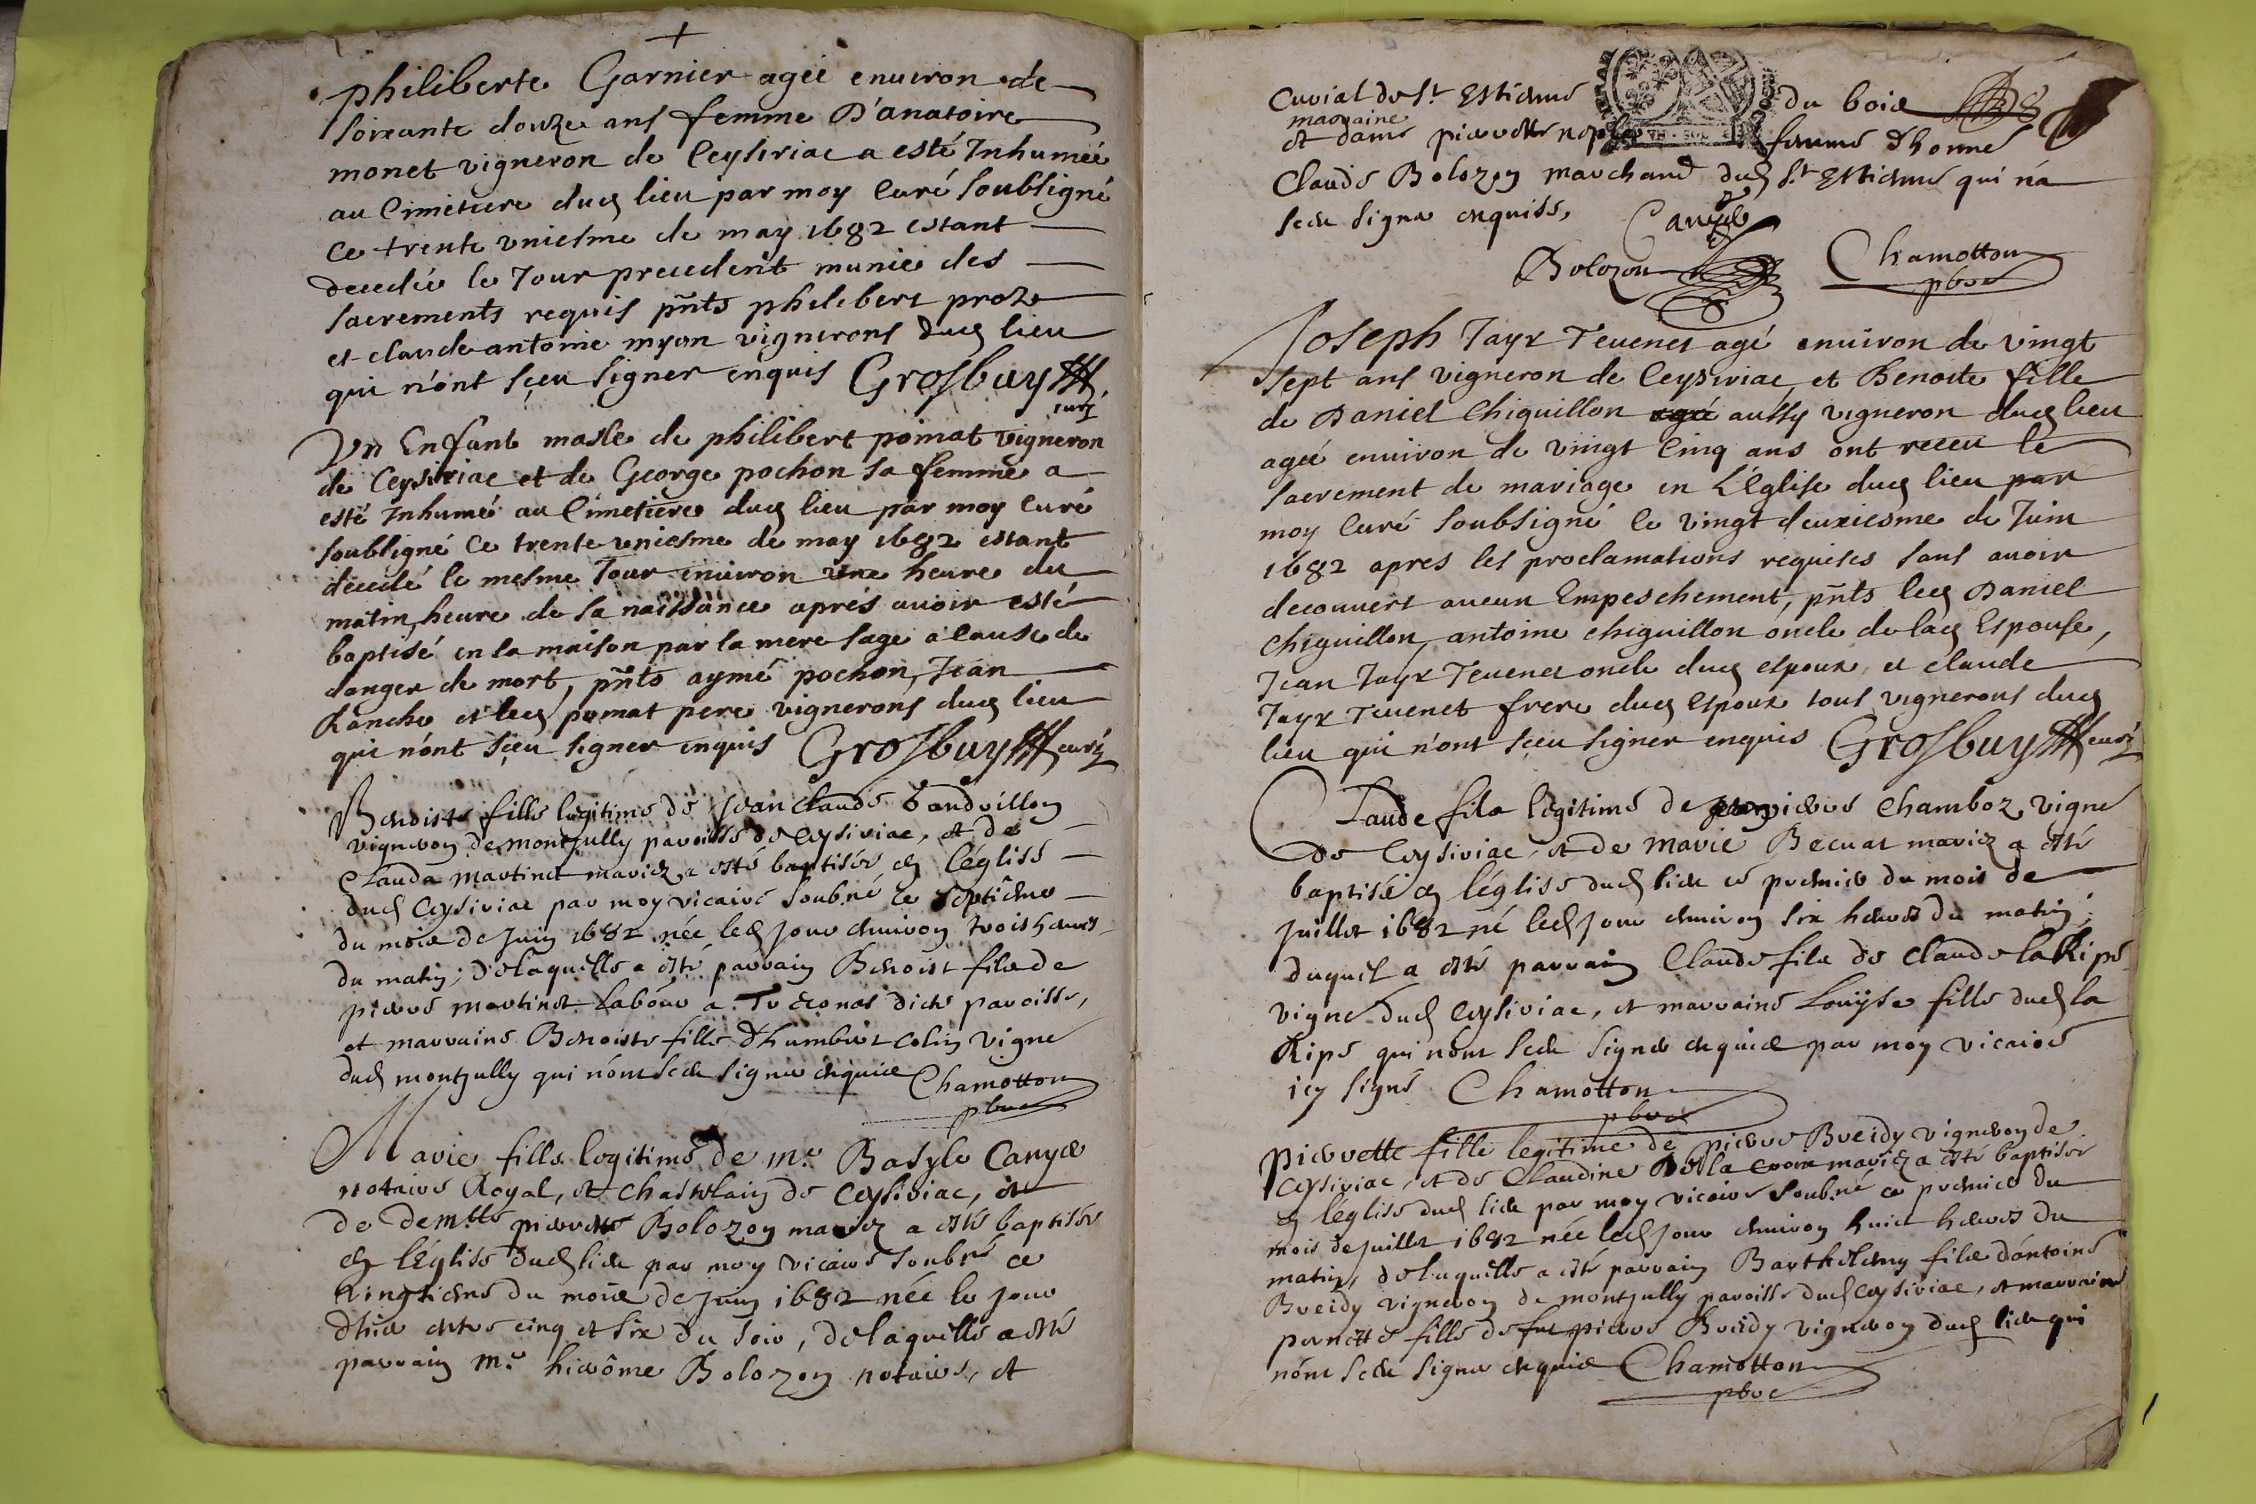 philiberte Garnier agée enuiron de
soixante douze ans femme D'anatoire
monet vigneron de Ceysiriac a esté Inhumée
au Cimetiere dud lieu par moy Curé soubsigné
Ce trente vniesme de may 1682 estant
decedée le Jour precedent munie des
sacrements requis pnts philibert proz
et claude antoine myon vignerons dud lieu
qui n'ont sçeu signer enquis Grosbuy
curé
Vn Enfant masle de philibert pomat vigneron
de Ceysiriac et de George pochon sa femme a
esté Inhumé au Cimetiere dud lieu par moy Curé
soubsigné Ce trente vniesme de may 1682 estant
decedé le mesme Jour enuiron vne heure du
matin, heure de sa naissance aprés auoir esté
baptisé en la maison par la mere sage a cause de
danger de mort, pnts aymé pochon, Jean
Ranche et led pomat pere vignerons dud lieu
qui n'ont sçeu signer enquis Grosbuy curé
Benoiste fille legitime de Jean Claude
vigneron de montjully paroisse de Ceysiriac, et de
Clauda martinet mariez a esté baptisée en l'église
dud Ceysiriac par moy vicaire soubné ce septiême
du mois de Juin 1682 née led jour enuiron trois heures
du matin; de laquelle a esté parrain Benoist fils de
pierre martinet labour a dicte paroisse,
et marraine Benoiste fille d'humbert Colin vigne
dud montjully qui n'ont sceu signer enquis Chamotton
pbre
Marie fille legitime de me. Basyle Canyd
notaire Royal, et Chastelain de Ceysiriac, et
de demlle pierrette Bolozon mariez a esté baptisée
en l'Église dud lieu par moy vicaire soubné ce
vingtiême du mois de Juin 1682 née le jour
d'hier entre cinq et six du soir, de laquelle a esté
parrain me. hierôme Bolozon notaire, et
Curial de St Estienne du bois
marraine
et dame pierrette femme d'honne
Claude Bolozon marchand dud St Estienne qui n'a
sceu signer enquise,
Bolozon Chamotton
pbre
Joseph Jayr Teuenet agé enuiron de vingt
sept ans vigneron de Ceysiriac, et Benoite fille
de Daniel Chiguillon aussy vigneron dud lieu
agée enuiron de vingt Cinq ans ont receu le
sacrement de mariage en L'Eglise dud lieu par
moy Curé soubsigné le vingt deuxiesme de Juin
1682 apres les proclamations requises sans auoir
decouuert aucun Empeschement, pnts led Daniel
Chiguillon, antoine chiguillon oncle de lad Espouse,
Jean Jayr Teuenet oncle dud espoux, et claude
Jayr Teuenet frere dud Espoux tous vignerons dud
lieu qui n'ont sçeu signer enquis Grosbuy curé
Claude fils legitime de pierre Chamboz vigne
de Ceysiriac, et de Marie Becuat mariez a esté
baptisé en l'église dud lieu ce premier du mois de
juillet 1682 né led jour enuiron six heures du matin;
duquel a esté parrain Claude fils de Claude la Ripe
vigne dud Ceysiriac, et marraine Louyse fille dud la
Ripe qui n'ont sceu signer enquis par moy vicaire
icy signé Chamotton
pbre
pierrette fille legitime de pierre Breidy vigneron de
Ceysiriac, et de Claudine De la croix mariez a esté baptisée
en l'église dud lieu par moy vicaire soubné ce premier du
mois de juillet 1682 née led jour enuiron huit heures du
matin, de laquelle a esté parrain Barthelemy fils d'antoine
Breidy vigneron de montjully paroisse dud Ceysiriac, et marraine
pernette fille de feu pierre Breidy vigneron dud lieu qui
n'ont sceu signer enquis Chamotton
pbre